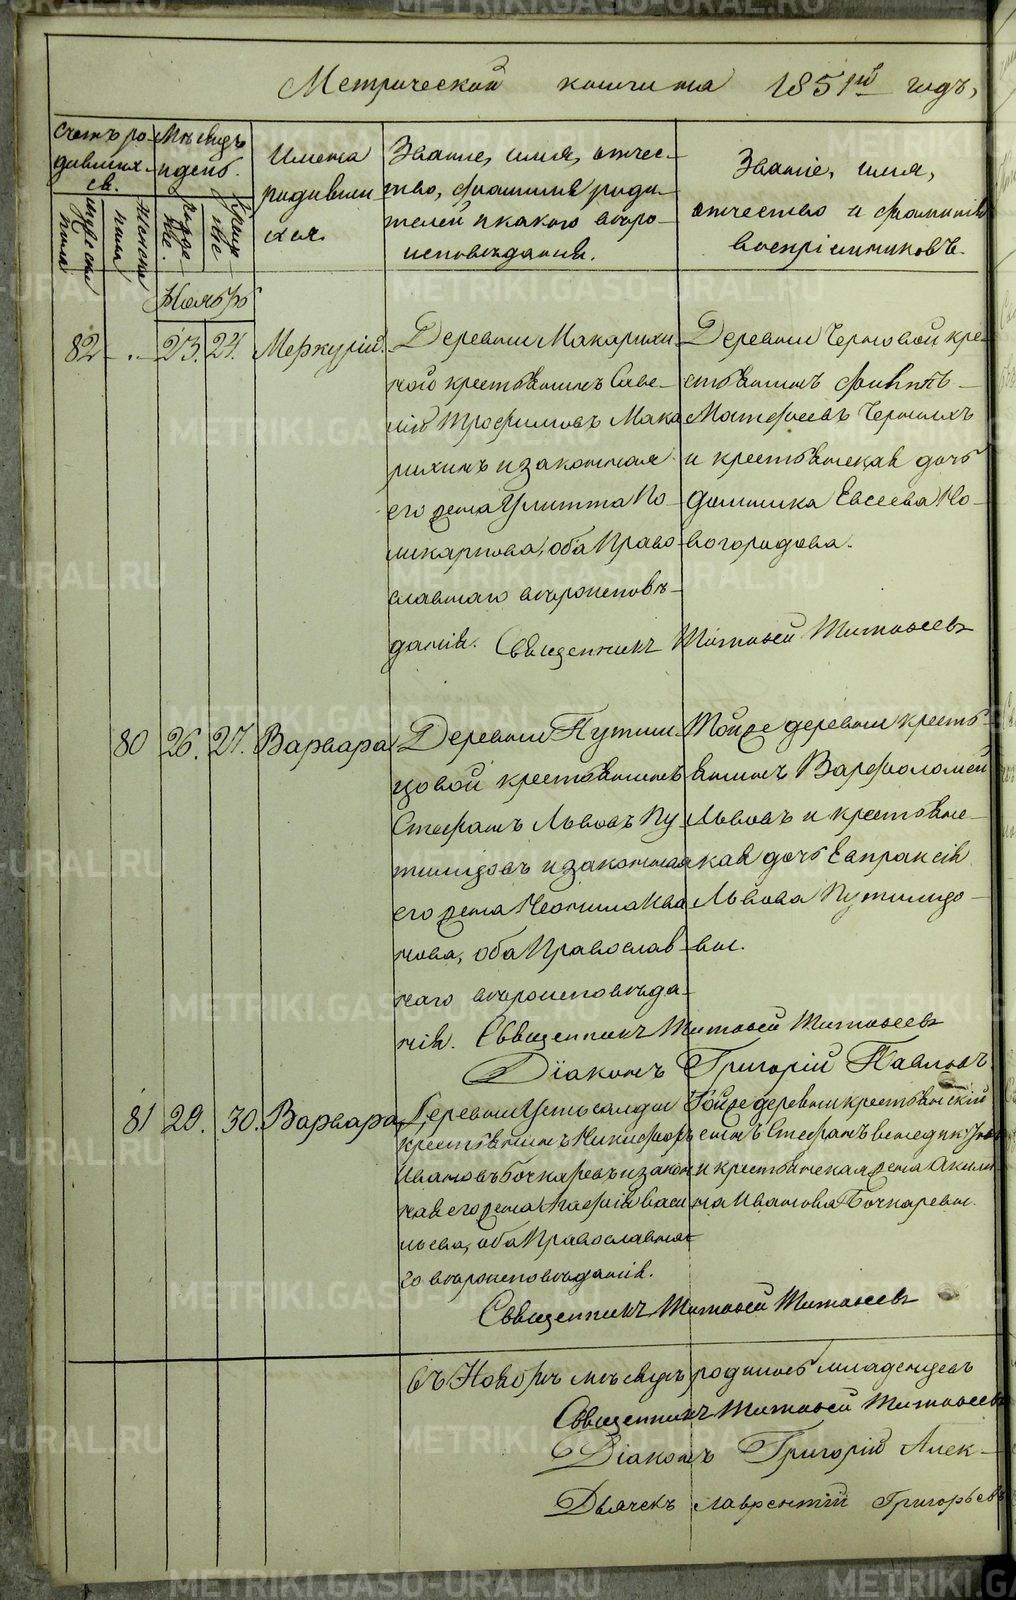 Метрической книги на 1851й годъ,
Счетъ ро-
дивших-
ся.
Мѣсяцъ
и день.
Имена
родивши
хся.
Званіе, имя, отчес-
тво, фамилия роди-
телей и какого вѣро-
исповѣдания.
Званіе, имя,
отчество и фамилия
воспріемниковъ.
мужеска
пола
женска
пола
рожде
ние
Ноябрь
82
23.
24.
Меркурій.
Деревни Макарихи-
ного крестьянинъ Саве-
лій Трофимовъ Мака
рихинъ и законная
его жена Улитта По-
ликарпова, оба Право
славнаго вѣроисповѣ-
данія.
Деревни Черновой кре-
стьянинъ Филипъ
Матфеевъ Черныхъ
и крестьянская дочь
Домника Евсеева Но-
вогородова.
Священникъ Тимофей Тимофеевъ
80
26.
27.
Варвара
Деревни Путили-
цовой крестьянинъ
Стефанъ Львовъ Пу-
тилцовъ и законная
его жена Неонила Ива
нова, оба Православ-
наго вѣроисповѣда-
нія.
Тойже деревни кресть-
янинъ Варфоломей
Львовъ и крестьянс-
кая дочь Евпраксія
Львова Путилцо-
вы.
Священникъ Тимофей Тимофеевъ
Діаконъ Григорій Павловъ
81
29.
30.
Варвара
Деревни Устьсалды
крестьянинъ Никифоръ
Ивановъ Бочкаревъ и закон
ная его жена Агафія Васи
льева, оба Православна
го вѣроисповѣданія.
Тойже деревни крестьянскій
сынъ Стефанъ Венедиктовъ
и крестьянская жена Акили
на Иванова Бочкаревы.
Священникъ Тимофей Тимофеевъ
въ Ноябрѣ мѣсяцѣ родилось младенцевъ
Священникъ Тимофей Тимофеевъ
Діаконъ Григорій Алек-
Дьячекъ Лаврентій Григорьевъ
METRIKI.GASO-URAL.RU